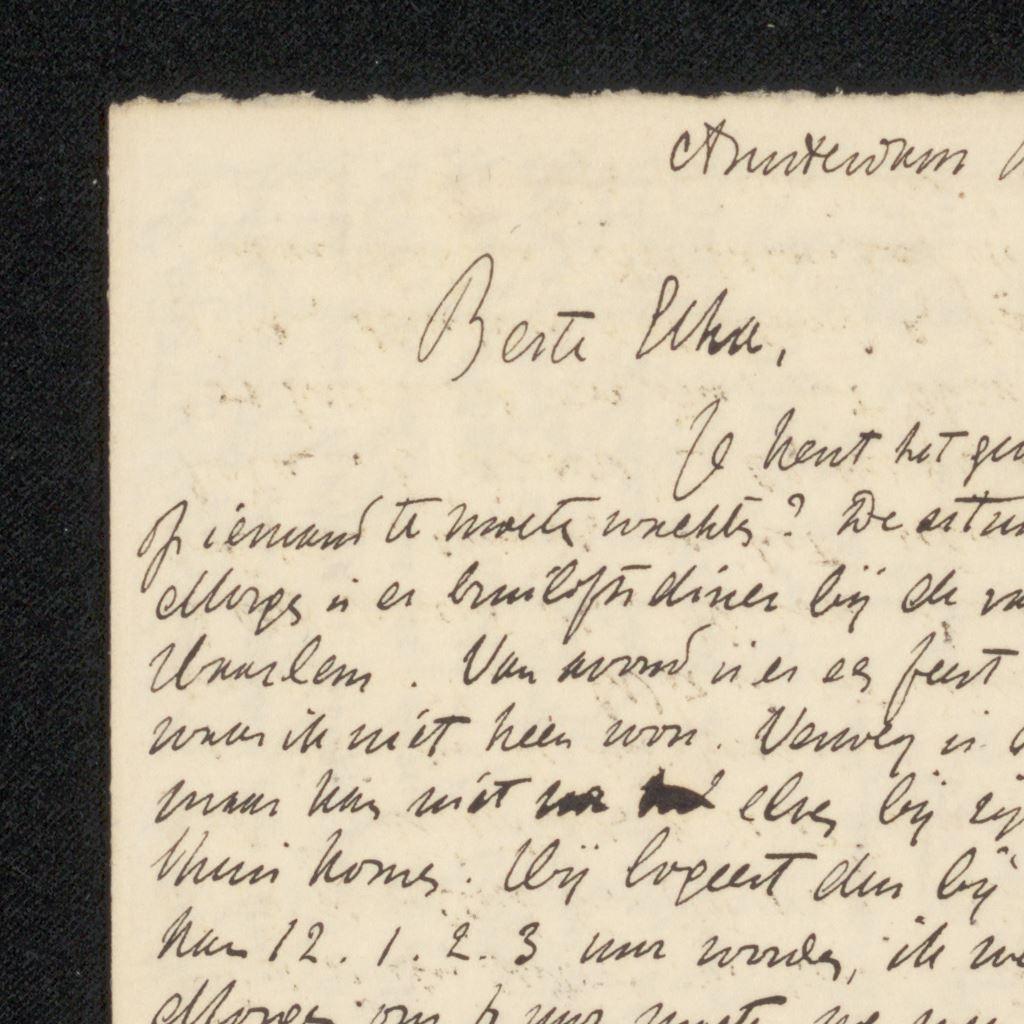 Amsterdam
Beste Elka,
Je kent het
Op iemand te moeten wachten? De
Morgen is er bruilofts diner bij de
Haarlem. Van avond is er een feest
waar ik niet heen wou. Verwey is
maar kan niet elders bij
thuis komen. Hij logeert dus bij
kan 12. 1. 2. 3 uur worden, ik
Morgen om uur moeten we